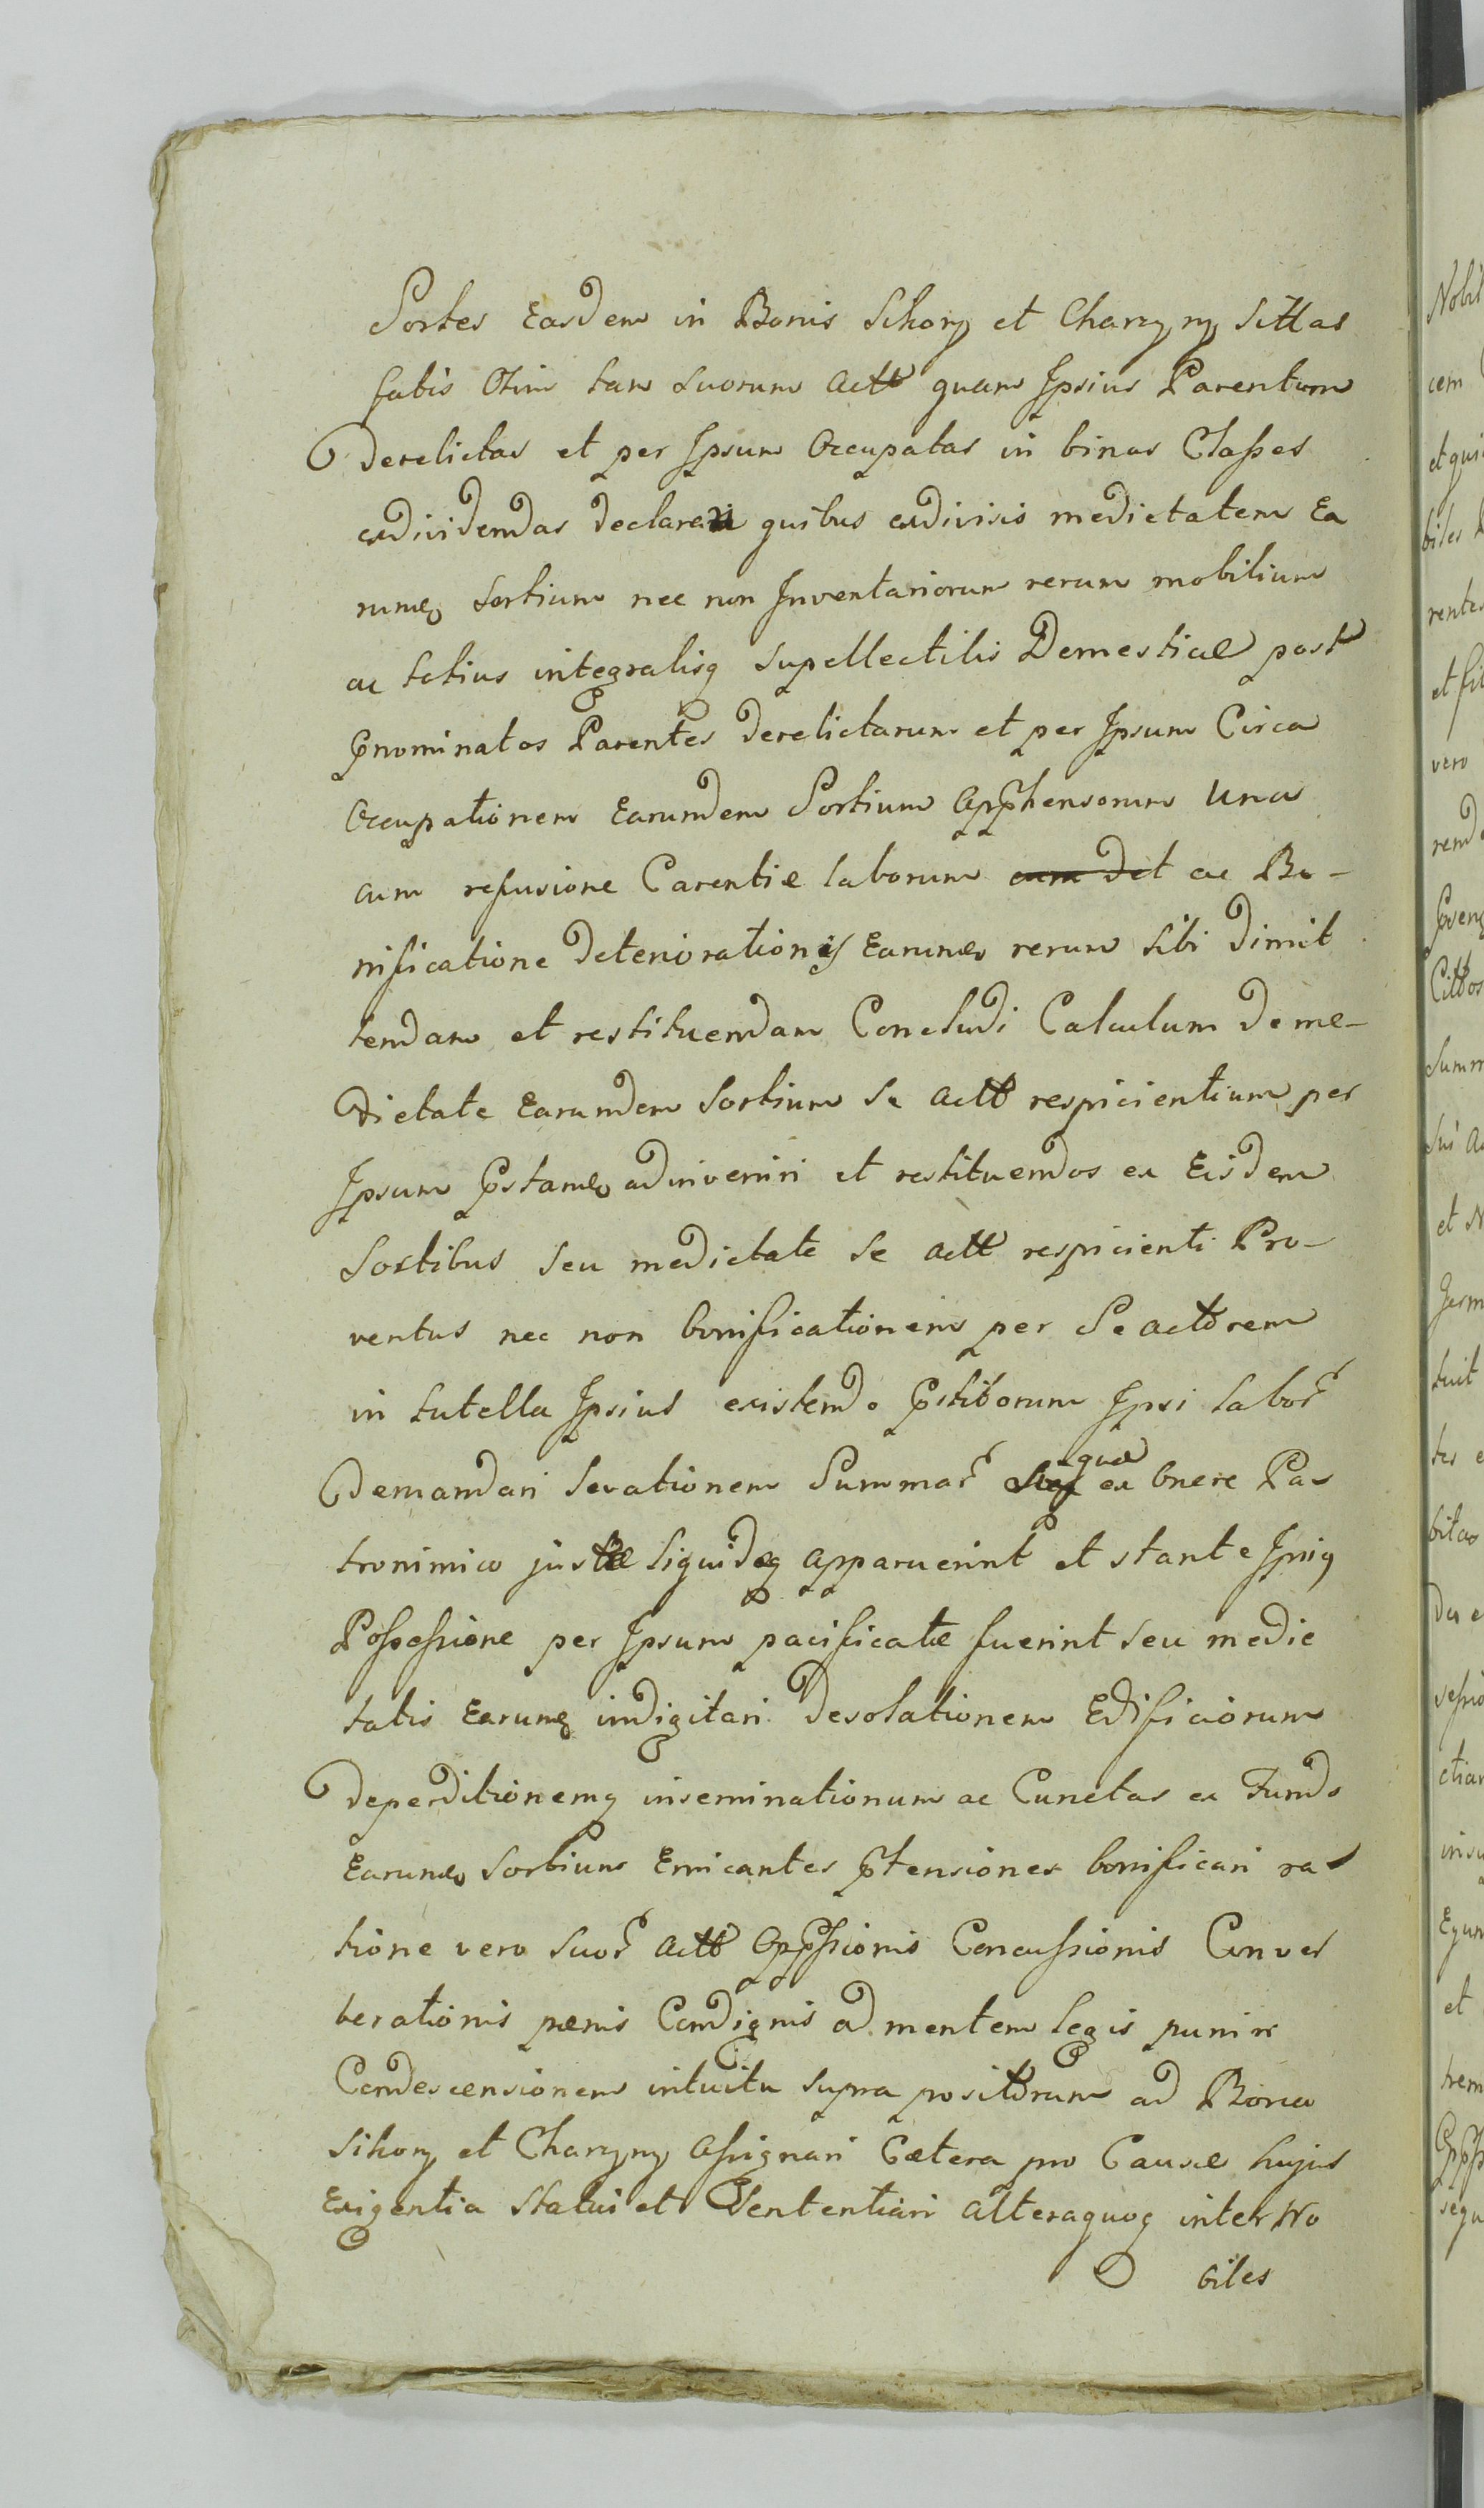 Sortes Easdem in Bonis Sikory et Charzyny Sittas
fatis Olim tam Suorum Actt quam Ipsius Parentum
derelictas et per Ipsum Occupatas in binas Classes
exdividendas declarari quibus exdivisis medietatem Ea
rumq sortium nec non Inventariorum rerum mobilium
ac totius integralisq supellectilis Domesticæ post
pnominatos Parentes derelictarum et per Ipsum Circa
Occupationem Earumdem Sortium Apphensorum Una
cum refusione Carentiæ laborum cum det ac Bo-
nificatione deteriorationis Earumq rerum sibi dimit
tendam et restituendam Concludi Calculum de me-
dietate Earumdem Sortium Se Actt respicientium per
Ipsum pstamq adinveniri et restituendos ex Eisdem
Sortibus seu medietate se Actt respicienti Pro-
ventus nec non bonificationem per Se Actorem
in tutella Ipsius existendo pstitorum Ipsi labor
Demandari Levationem Summar quæ ex Onere Pa
tronimico justæ liquidæq apparuerint et stante Ipsiq
Possessione per Ipsum pacificatæ fuerint seu medie
tatis Earumq indigitari desolationem Edificiorum
deperditionemq inseminationum ac Cunctas ex Fundo
Earumq Sortium Emicantes ptensiones bonificari ra
tione vero Suor Actt Oppssionis Concussionis Conver
berationis pænis Condignis ad mentem legis punire
Condescensionem intuitu supra positorum ad Bona
Sikory et Charzyny Assignari Cætera pro Causæ hujus
Exigentia Statui et Sententiari Alteraquoq inter No
biles